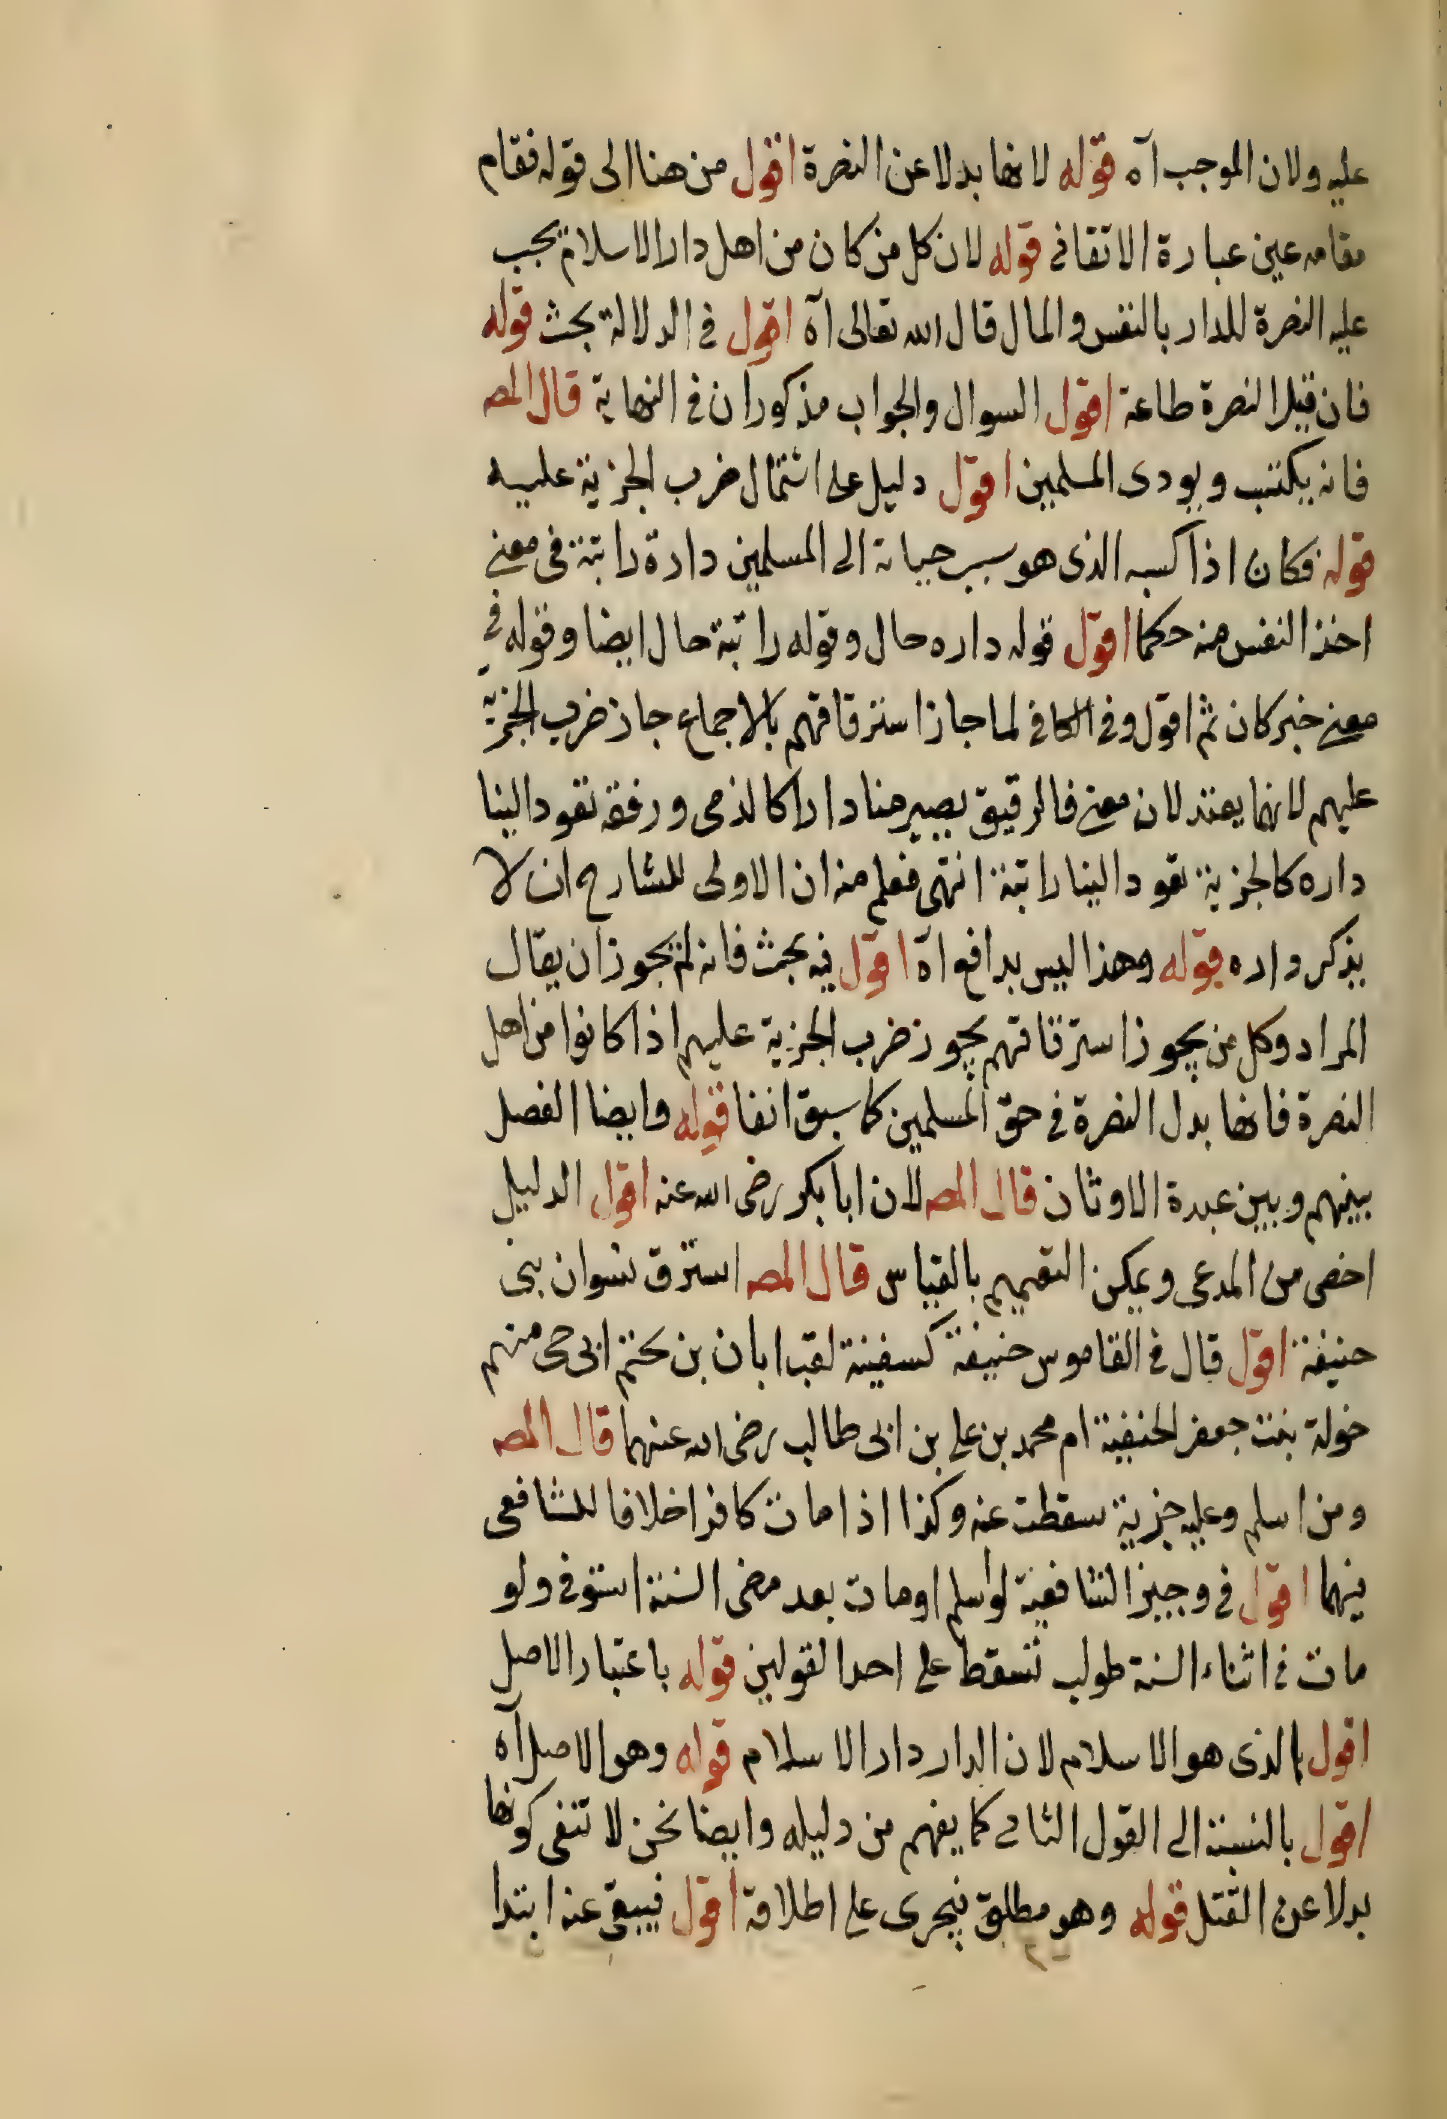 عليه ولان الموجب آه قوله لانها بدلا عن النصرة اقول من هنا الى قوله فقام
مقامه عين عبارة الاتقانى قوله لان كل من كان من اهل دار الاسلام يجب
عليه النصرة للدار بالنفس والمال قال الله تعالى آه اقول فى الدلالة بحث قوله
فان قيل النصرة طاعة اقول السوال والجواب مذكوران فى النهاية قال المصـ
فانه يكتسب ويودى المسلمين اقول دليل على اشتمال ضرب الجزية عليه
قوله فكان اذا كسبه الذى هو سبب حياته الى المسلمين دارة راتبة فى معنى
اخذ النفس منه حكما اقول قوله داره حال وقوله راتبة حال ايضا وقوله فى
معنى خبر كان ثم اقول وفى الكافى لما جاز استرقاقهم بالاجماع جاز ضرب الجزية
عليهم لانهما يعتدلان معنى فالرقيق يصير منا دارا كالذمى ورفقة تعود الينا
داره كالجزية تعود الينا راتبة انتهى فعلم منه ان الاولى للشارح ان لا
يذكر داره قوله وهذا ليس بدافع آه اقول فيه بحث فانه لم يجوز ان يقال
المراد وكل من يجوز استرقاقهم يجوز ضرب الجزية عليهم اذا كانوا من اهل
النصرة فانها بدل النصرة فى حق المسلمين كما سبق انفا قوله وايضا الفصل
بينهم وبين عبدة الاوثان قال المصـ لان ابا بكر رضى الله عنه اقول الدليل
اخص من المدعى ويمكن التعميم بالقياس قال المصـ استرق نسوان بنى
حنيفة اقول قال فى القاموس حنيفة كسفينة لقب ابان بن ختم ابى حى منهم
خولة بنت جعفر الحنفية ام محمد بن على بن ابى طالب رضى الله عنهما قال المصـ
ومن اسلم وعليه جزية سقطت عنه وكذا اذا مات كافرا خلافا للشافعى
فيهما اقول فى وجيز الشافعية لو اسلم او مات بعد مضى السنة استوفى ولو
مات فى اثناء السنة طولب تسقط على احد القولين قوله باعتبار الاصل
اقول الذى هو الاسلام لان الدار دار الاسلام قوله وهو الاصل آه
اقول بالنسبة الى القول الثانى كما يفهم من دليله وايضا نحن لا تنفى كونها
بدلا عن القتل قوله وهو مطلق فيجرى على اطلاقه اقول فيبقى عنه ابتدا